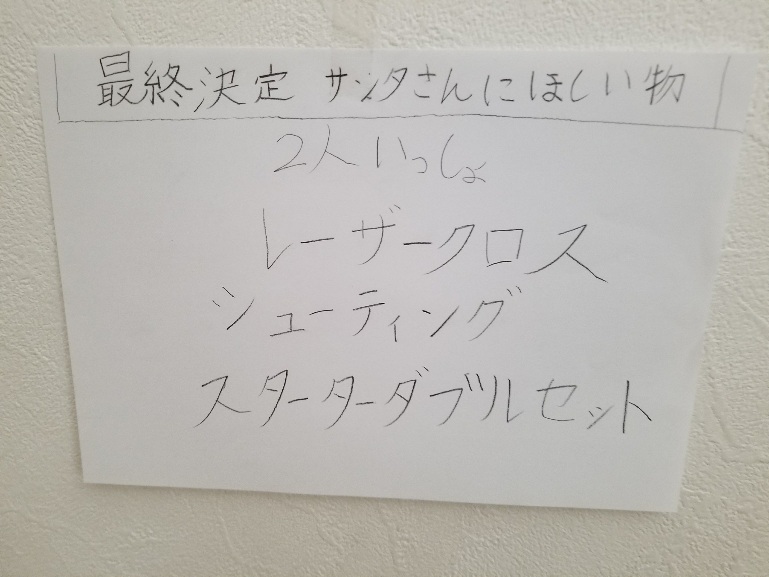 最終決定 サンタさんにほしい物
2人いっしょ
レーザークロス
シューティング
スターターダブルセット